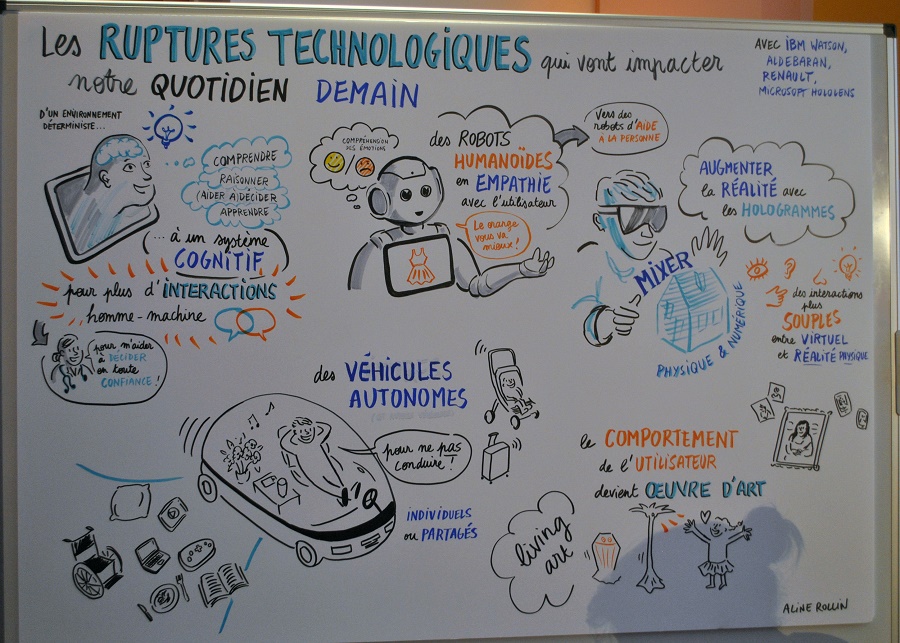 Les RUPTURES TECHNOLOGIQUES qui vont impacter
notre QUOTIDIEN DEMAIN
AVEC IBM WATSON,
ALDEBARAN,
RENAULT,
MICROSOFT HOLOLENS
D'UN ENVIRONNEMENT
DÉTERMINISTE...
COMPRENDRE
RAISONNER
(AIDER A) DECIDER
APPRENDRE
(... à un système
COGNITIF
pour plus d'INTERACTIONS
homme-machine
pour m'aider
à DÉCIDER
en toute
CONFIANCE !
COMPRÉHENSION
DES ÉMOTIONS
des ROBOTS
HUMANOÏDES
en EMPATHIE
avec l'utilisateur
Le orange
vous va
mieux !
Vers des
robots d'AIDE
À LA PERSONNE
AUGMENTER
la RÉALITÉ avec
les HOLOGRAMMES
MIXER
PHYSIQUE & NUMÉRIQUE
des interactions
plus
SOUPLES
entre VIRTUEL
et RÉALITÉ PHYSIQUE
des VÉHICULES
AUTONOMES
pour ne pas
conduire !
INDIVIDUELS
ou PARTAGÉS
le COMPORTEMENT
de l'UTILISATEUR
devient ŒUVRE D'ART
living
art
ALINE ROLLIN